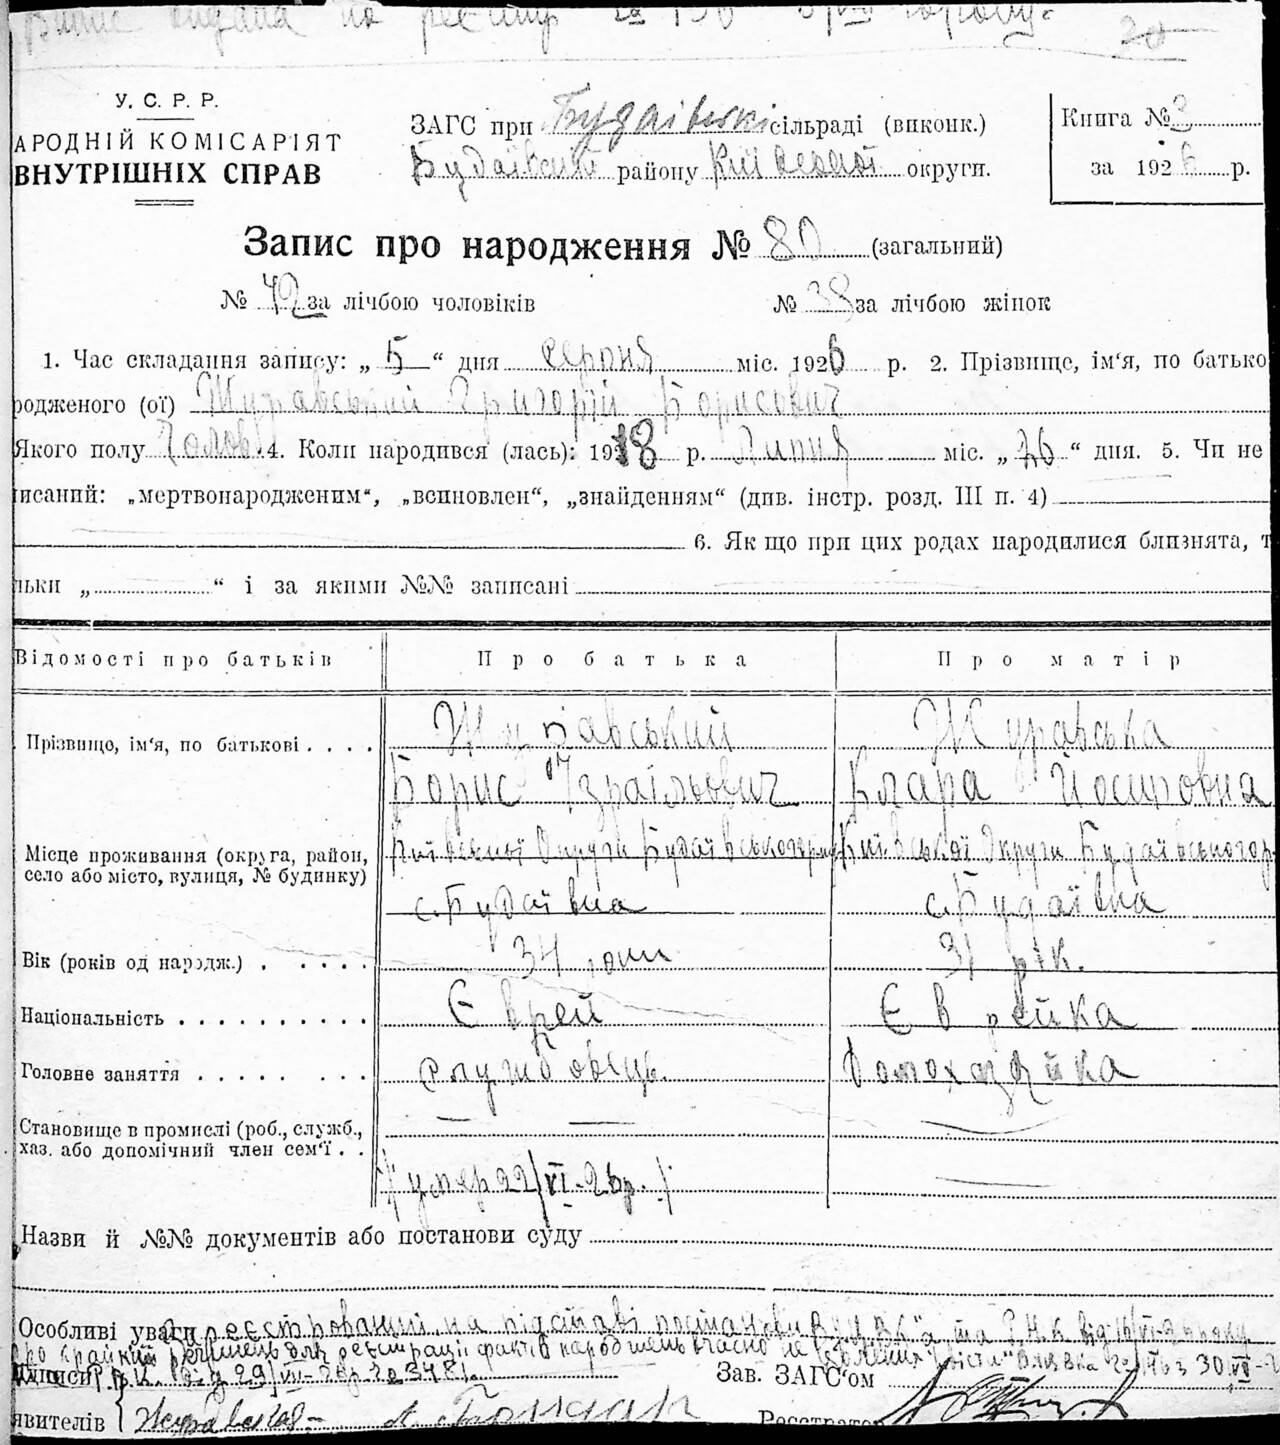 У. С. Р. Р.
АРОДНІЙ КОМІСАРІЯТ
ВНУТРІШНІХ СПРАВ
ЗАГС при Будаївські сільраді (виконк.)
Будаївський району Київської округи.
Книга № 3
за 1926 р.
Запис про народження № 80 (загальний)
№ 42 за лічбою чоловіків № 38 за лічбою жінок
1. Час складання запису: „ 5 “ дня серпня міс. 1926 р. 2. Прізвище, ім‘я, по батько
родженого (ої) Журавський Григорій Борисович
Якого полу Чолов. 4. Коли народився (лась): 1918 р. Липня міс. „ 26 “ дня. 5. Чи не
писаний: „мертвонародженим“, „всиновлен“, „знайденням“ (див. інстр. розд. III п. 4)
6. Як що при цих родах народилися близнята, т
льки „ “ і за якими №№ записані
Відомості про батьків Про батька Про матір
Прізвище, ім‘я, по батькові . . . . Журавський Журавська
Борис Ізраїльович Клара Йосиповна
Місце проживання (округа, район, село або місто, вулиця, № будинку) Київської Округи Будаївського Київської Округи Будаївського
с. Будаївка с. Будаївка
Вік (років од народж.) . . . . . 34 роки 31 рік.
Національність . . . . . . . . . . Єврей Єврейка
Головне заняття . . . . . . . . Службовець. Домохазяйка
Становище в промислі (роб., служб., хаз. або допомічний член сем‘ї . .
/умер 22/VI-26р./
Назви й №№ документів або постанови суду
Особливі уваги Зареєстрований на підставі постанови ВУЦВК"а та Р.Н.К. від
про крайній реєстрації фактів народжень вчасно не
Підписи 29/VII-26р. № 3481. Зав. ЗАГС‘ом
явителів { Журавська Бондар Реєстратор